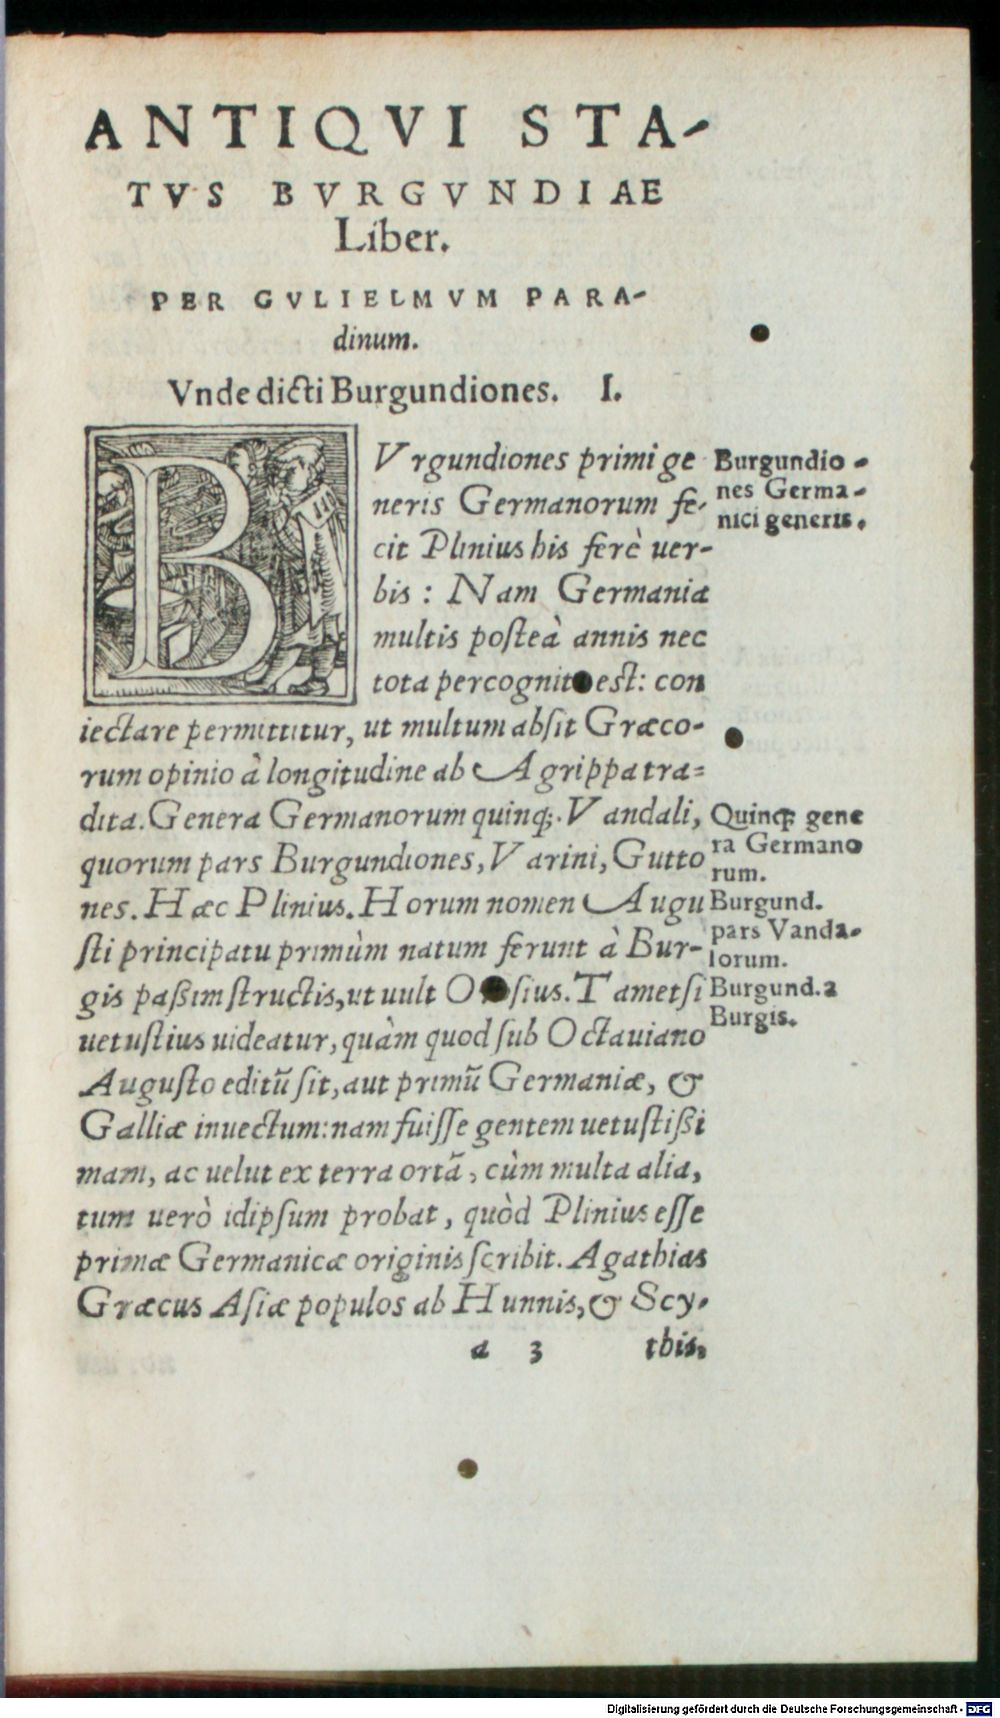 ANTIQVI STA-
TVS BVRGVNDIAE
Liber.
PER GVLIELMVM PARA-
dinum.
Vnde dicti Burgundiones. I.
BVrgundiones primi ge
neris Germanorum fe-
cit Plinius his ferè uer-
bis: Nam Germania
multis posteà annis nec
tota percognit est: con
iectare permittitur, ut multum absit Græco-
rum opinio à longitudine ab Agrippa tra-
dita. Genera Germanorum quinq;. Vandali,
quorum pars Burgundiones, Varini, Gutto
nes. Hæc Plinius. Horum nomen Augu
sti principatu primùm natum ferunt à Bur-
gis paßim structis, ut uult O sius. Tametsi
uetustius uideatur, quàm quod sub Octauiano
Augusto editū sit, aut primū Germaniæ, &
Galliæ inuectum: nam fuisse gentem uetustißi
mam, ac uelut ex terra ortā, cùm multa alia,
tum uerò idipsum probat, quòd Plinius esse
primæ Germanicæ originis scribit. Agathias
Græcus Asiæ populos ab Hunnis, & Scy-
a 3 this,
Burgundio-
nes Germa-
nici generis.
Quinq; gene
ra Germano
rum.
Burgund.
pars Vanda-
lorum.
Burgund. a
Burgis.
Digitalisierung gefördert durch die Deutsche Forschungsgemeinschaft - DFG